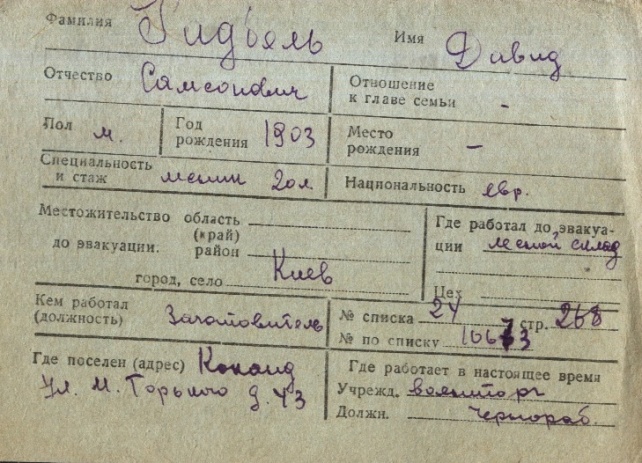 Фамилия Гидъель Имя Давид
Отчество Самсонович
Отношение
к главе семьи -
Пол м.
Год
рождения 1903
Место
рождения -
Специальность
и стаж 20л.
Национальность евр.
Местожительство область
(край)
до эвакуации. район
город, село Киев
Где работал до эвакуа-
ции лесной склад
Цех
Кем работал
(должность) Заготовитель
№ списка 24 стр. 268
№ по списку 10673
Где поселен (адрес) Коканд
ул. М. Горького д. 43
Где работает в настоящее время
Учрежд. военторг
Должн. чернораб.